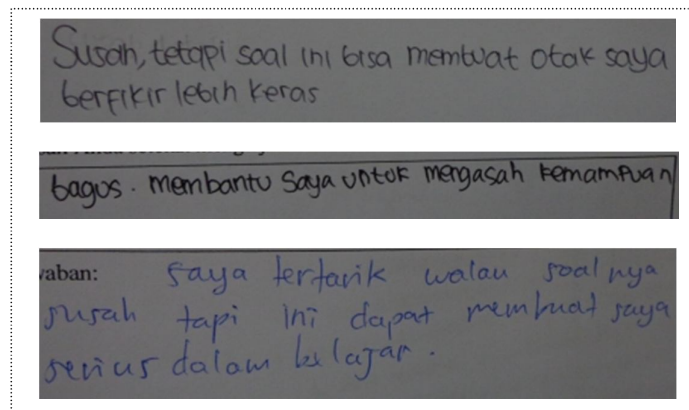 Susah, tetapi soal ini bisa membuat otak saya
berfikir lebih keras
bagus. membantu saya untuk mengasah kemampuan
vaban: saya tertarik walau soal nya
susah tapi ini dapat membuat saya
serius dalam belajar.